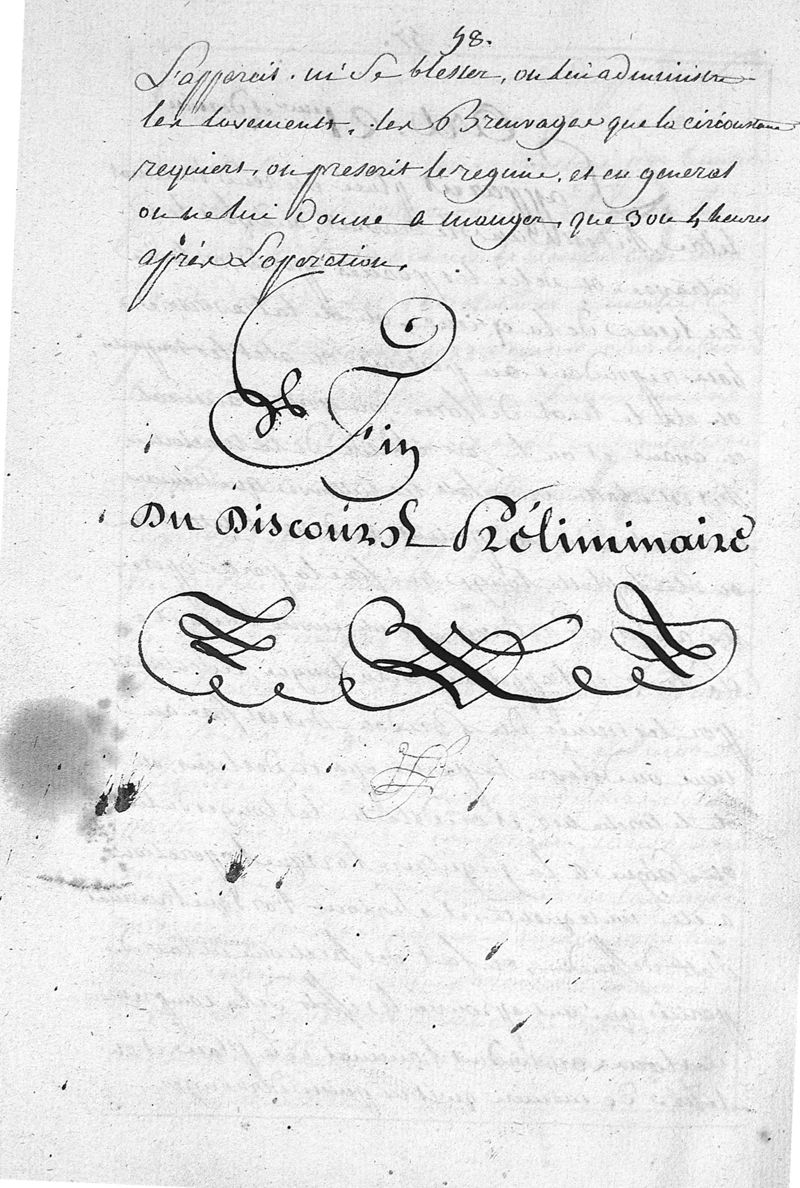 58.
L'appareil. ni se blesser, on lui administre
les lavements, les Breuvages que la circonstance
requiert, on prescrit le regime, et en general
on ne lui donne a manger, que 3 ou 4 heures
après L'operation.
Fin
Du Discours Préliminaire